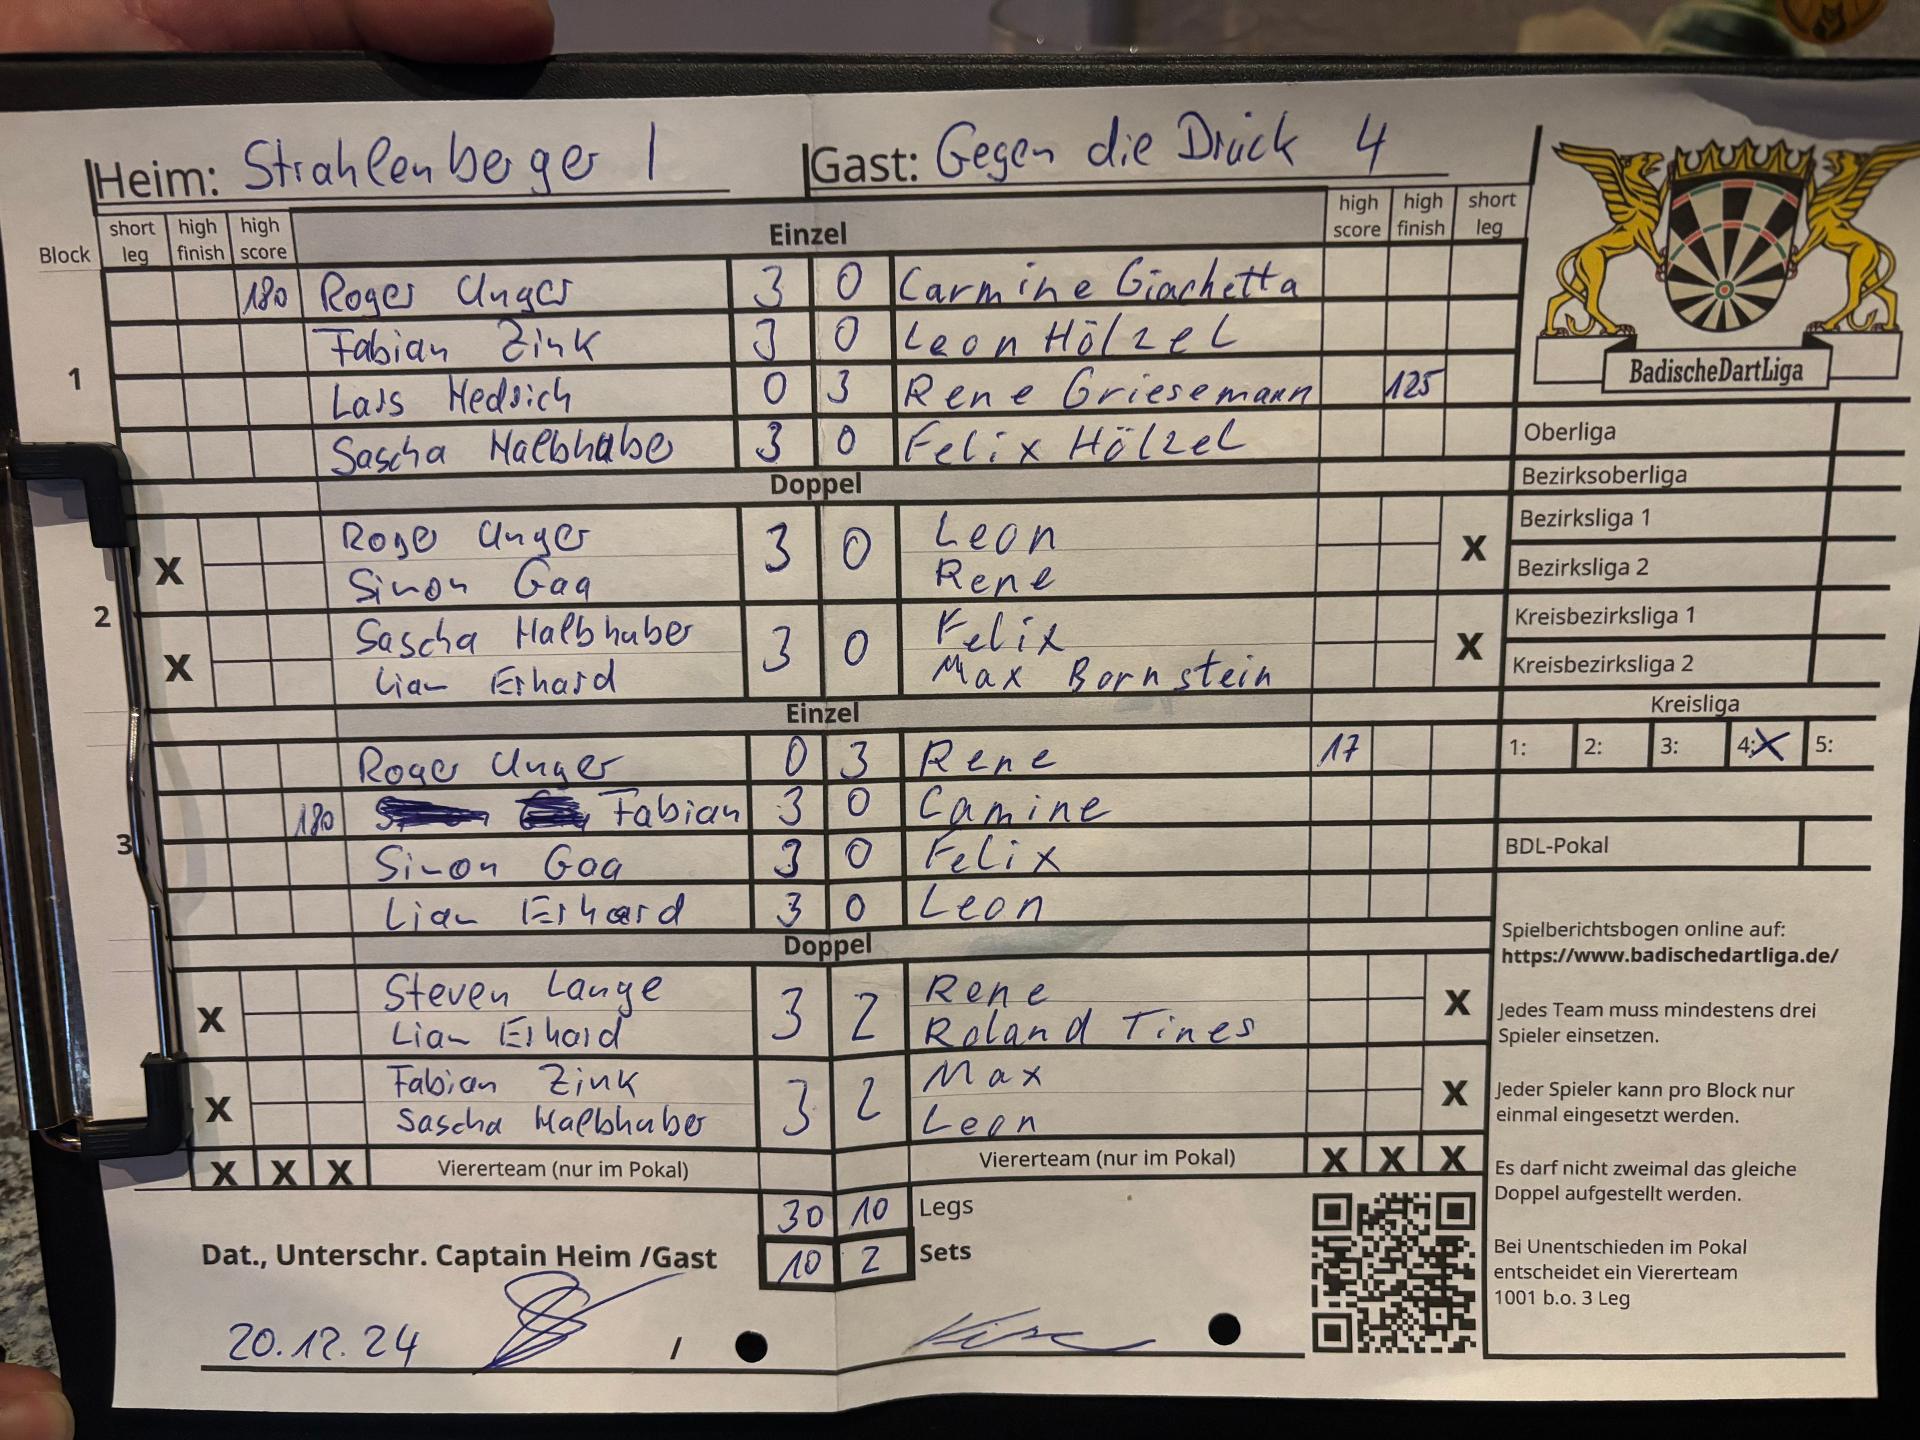 Heim: Strahlenberger 1 Gast: Gegen die Drück 4
Block short leg high finish high score Einzel high score high finish short leg
1
180 Roger Unger 3 0 Carmine Giachetta
Fabian Zink 3 0 Leon Hölzel
Lars Hedrich 0 3 Rene Griesemann 125
Sascha Halbhuber 3 0 Felix Hölzel
Doppel
2
X Roger Unger 3 0 Leon X
Simon Gaa Rene
X Sascha Halbhuber 3 0 Felix X
Lian Erhard Max Bornstein
Einzel
3
Roger Unger 0 3 Rene 17
180 Fabian 3 0 Camine
Simon Gaa 3 0 Felix
Lian Erhard 3 0 Leon
Doppel
X Steven Lange 3 2 Rene X
Lian Erhard Roland Tines
X Fabian Zink 3 2 Max X
Sascha Halbhuber Leon
X X X Viererteam (nur im Pokal) Viererteam (nur im Pokal) X X X
30 10 Legs
10 2 Sets
Dat., Unterschr. Captain Heim /Gast
20.12.24 /
BadischeDartLiga
Oberliga
Bezirksoberliga
Bezirksliga 1
Bezirksliga 2
Kreisbezirksliga 1
Kreisbezirksliga 2
Kreisliga
1: 2: 3: 4: X 5:
BDL-Pokal
Spielberichtsbogen online auf:
https://www.badischedartliga.de/
Jedes Team muss mindestens drei
Spieler einsetzen.
Jeder Spieler kann pro Block nur
einmal eingesetzt werden.
Es darf nicht zweimal das gleiche
Doppel aufgestellt werden.
Bei Unentschieden im Pokal
entscheidet ein Viererteam
1001 b.o. 3 Leg